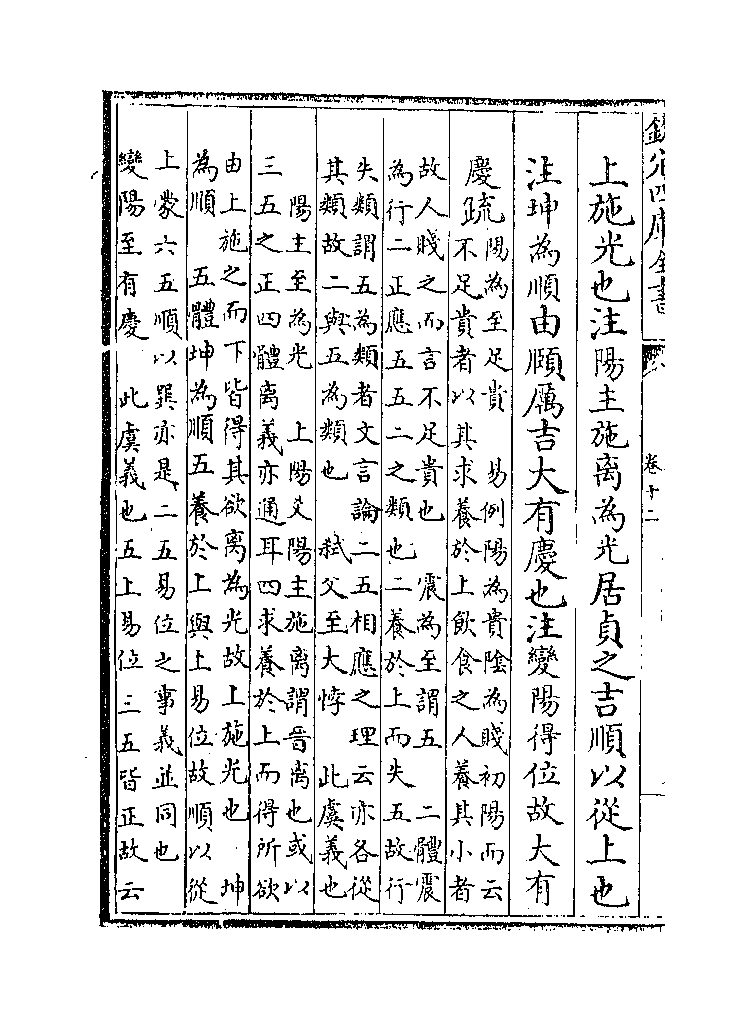 欽定四庫全書
卷十二
上施光也注陽主施离為光居貞之吉順以從上也
注坤為順由頤厲吉大有慶也注變陽得位故大有
慶疏
陽為至足貴　易例陽為貴陰為賤初陽而云
不足貴者以其求養於上飲食之人養其小者
故人賤之而言不足貴也　震為至謂五　二體震
為行二正應五五二之類也二養於上而失五故行
失類謂五為類者文言論二五相應之理云亦各從
其類故二與五為類也　弑父至大悖　此虞義也
陽主至為光　上陽爻陽主施離謂晉離也或以
三五之正四體离義亦通耳四求養於上而得所欲
由上施之而下皆得其欲离為光故上施光也　坤
為順　五體坤為順五養於上與上易位故順以從
上蒙六五順以巽亦是二五易位之事義並同也
變陽至有慶　此虞義也五上易位三五皆正故云